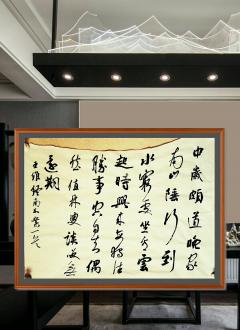 中歲頗道晚家
南山陲行到
水窮處坐看雲
起時興來每獨往
勝事空自知偶
然值林叟談笑無
還期
王維終南別業